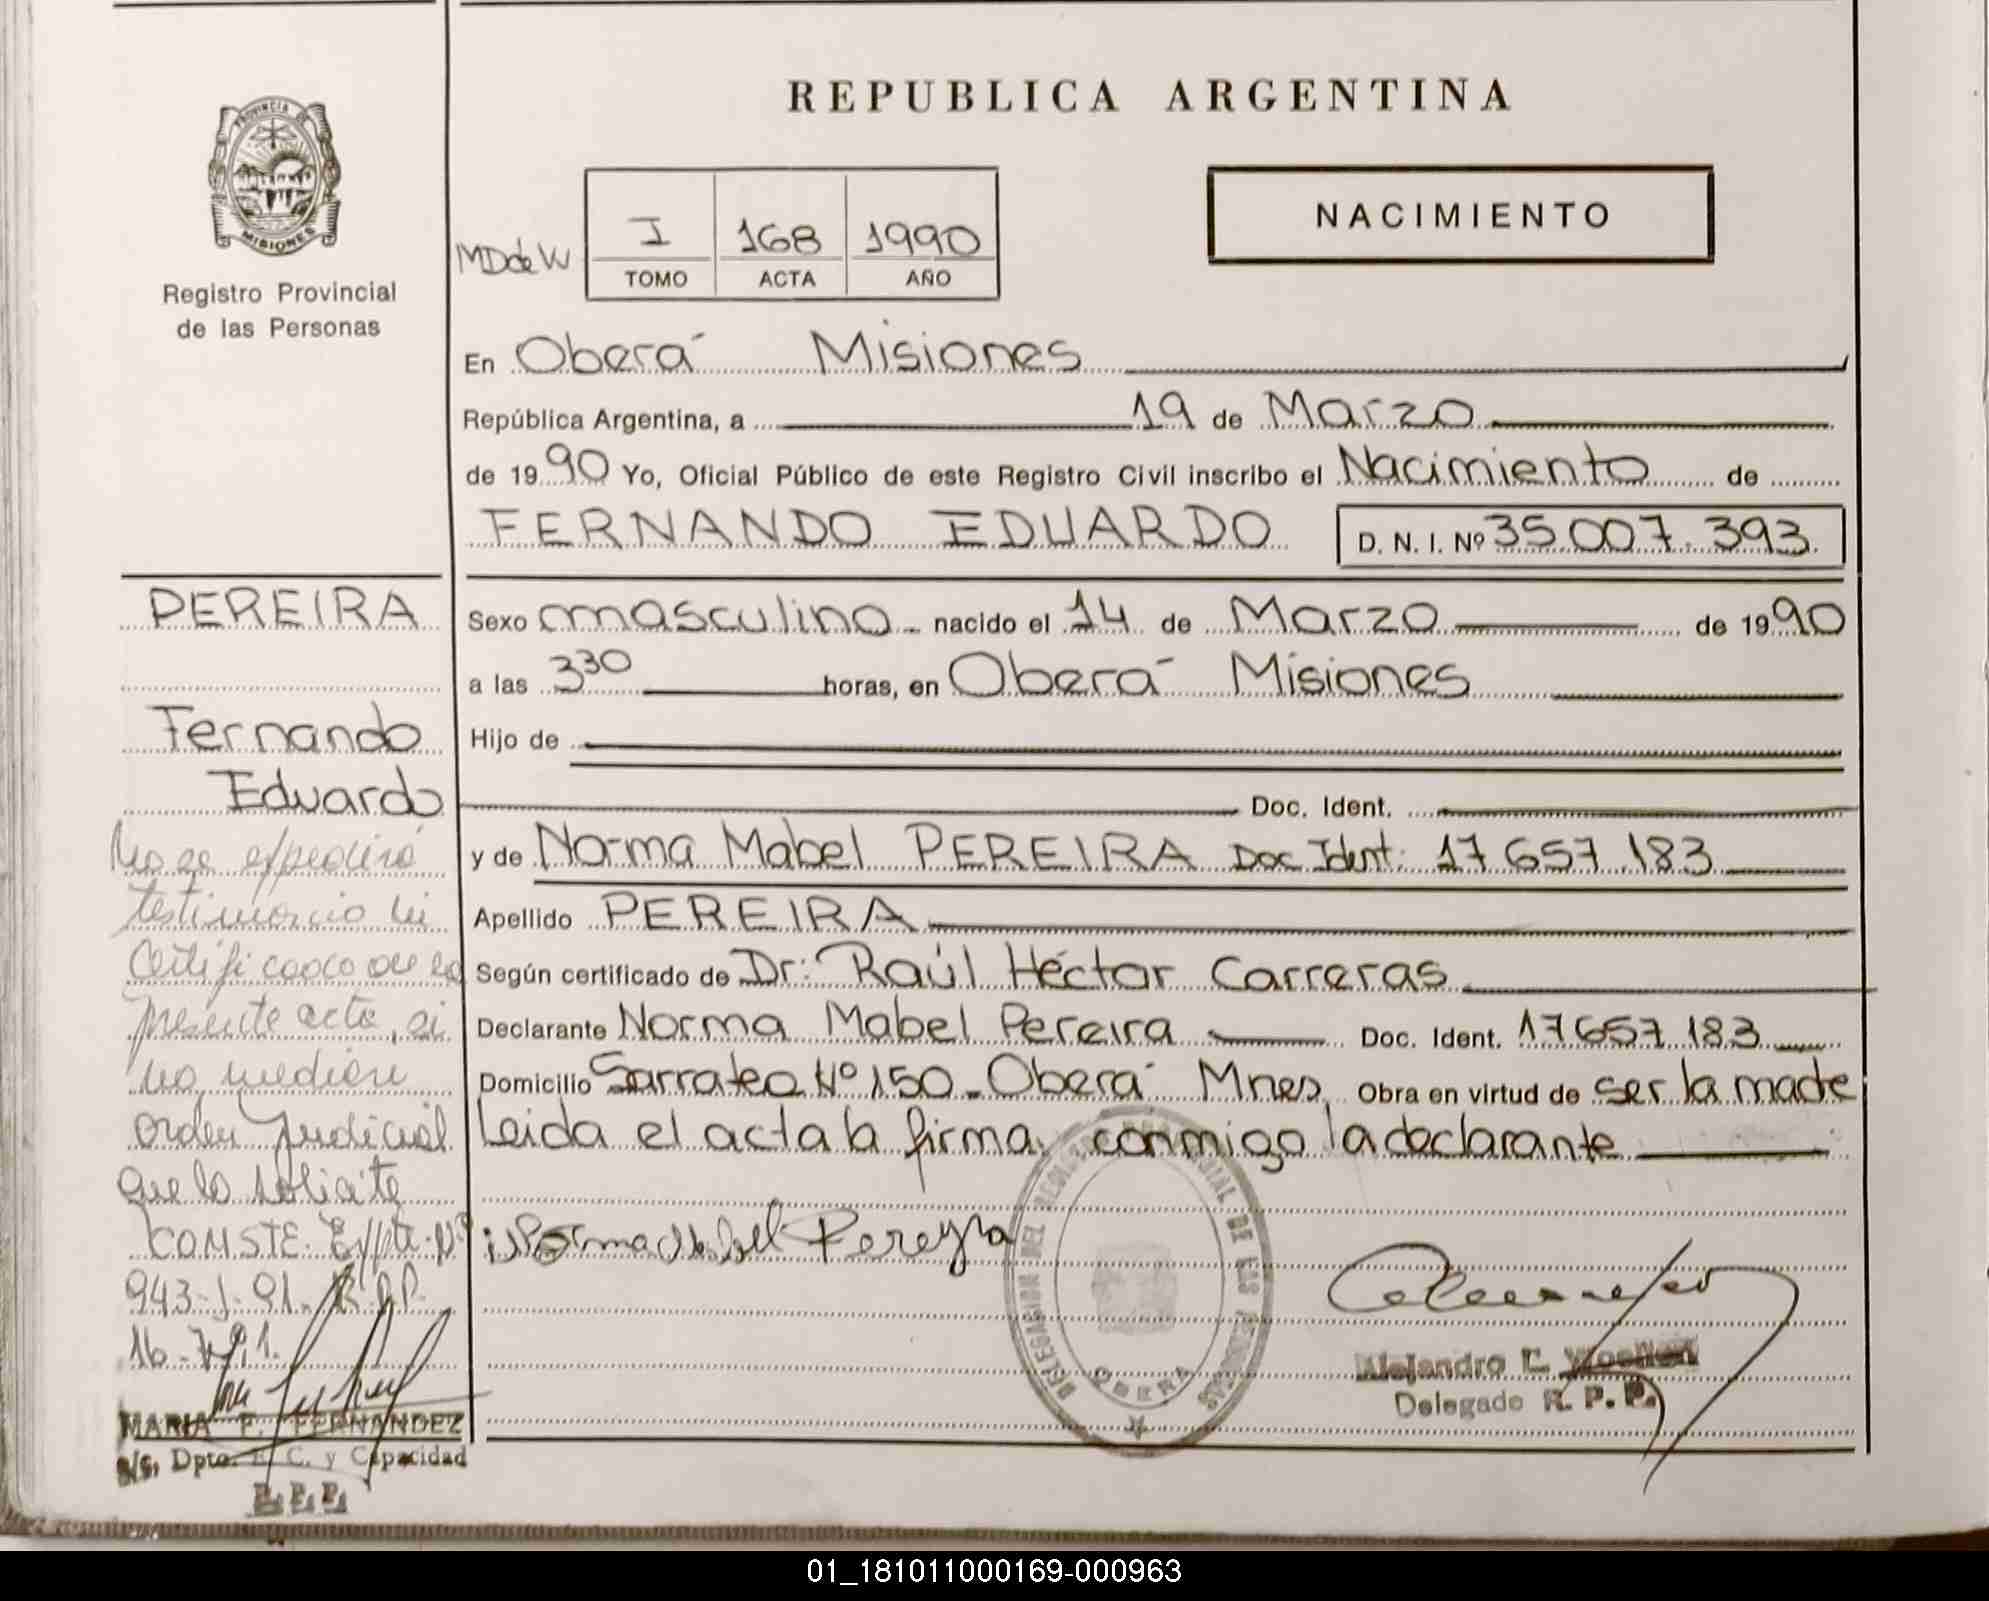 REPUBLICA ARGENTINA
PROVINCIA DE
MISIONES
Registro Provincial
de las Personas
NACIMIENTO
MDdeW
I 168 1990
TOMO ACTA AÑO
En Oberá Misiones
República Argentina, a 19 de Marzo
de 1990 Yo, Oficial Público de este Registro Civil inscribo el Nacimiento de
FERNANDO EDUARDO D. N. I. Nº 35.007.393
Sexo masculino nacido el 14 de Marzo de 1990
a las 3 30 horas, en Oberá Misiones
Hijo de
Doc. Ident.
y de Norma Mabel PEREIRA Doc Ident: 17 657 183
Apellido PEREIRA
Según certificado de Dr: Raúl Héctor Carreras
Declarante Norma Mabel Pereira Doc. Ident. 17657 183
Domicilio Sarratea Nº 150 - Oberá Mnes Obra en virtud de ser la madre
Leida el acta la firma conmigo la declarante
Norma Mabel Pereyra
DELEGACION DEL REGISTRO PROVINCIAL DE LAS PERSONAS
OBERA
Alejandro E.
Delegado R. P. P.
PEREIRA
Fernando
Eduardo
No se expedirá
testimonio ni
Certificado de la
presente acta, si
no mediare
orden Judicial
que lo solicite
CONSTE. Expte. Nº
943-J-91. R.P.P.
16-7-91.
MARIA F. FERNANDEZ
a/c. Dpto. E. C. y Capacidad
R. P. P.
01_181011000169-000963